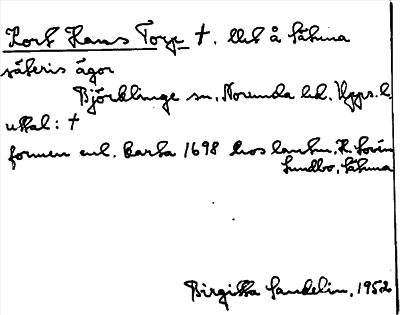 Kort Hans Torp †. litet å Sätuna
säteris ägor
Björklinge sn, Norunda hd, Upps. l.
uttal: †
formen enl. karta 1698 hos lantm. K. Lovén
Sundbo, Sätuna
Birgitta Sandelin, 1952